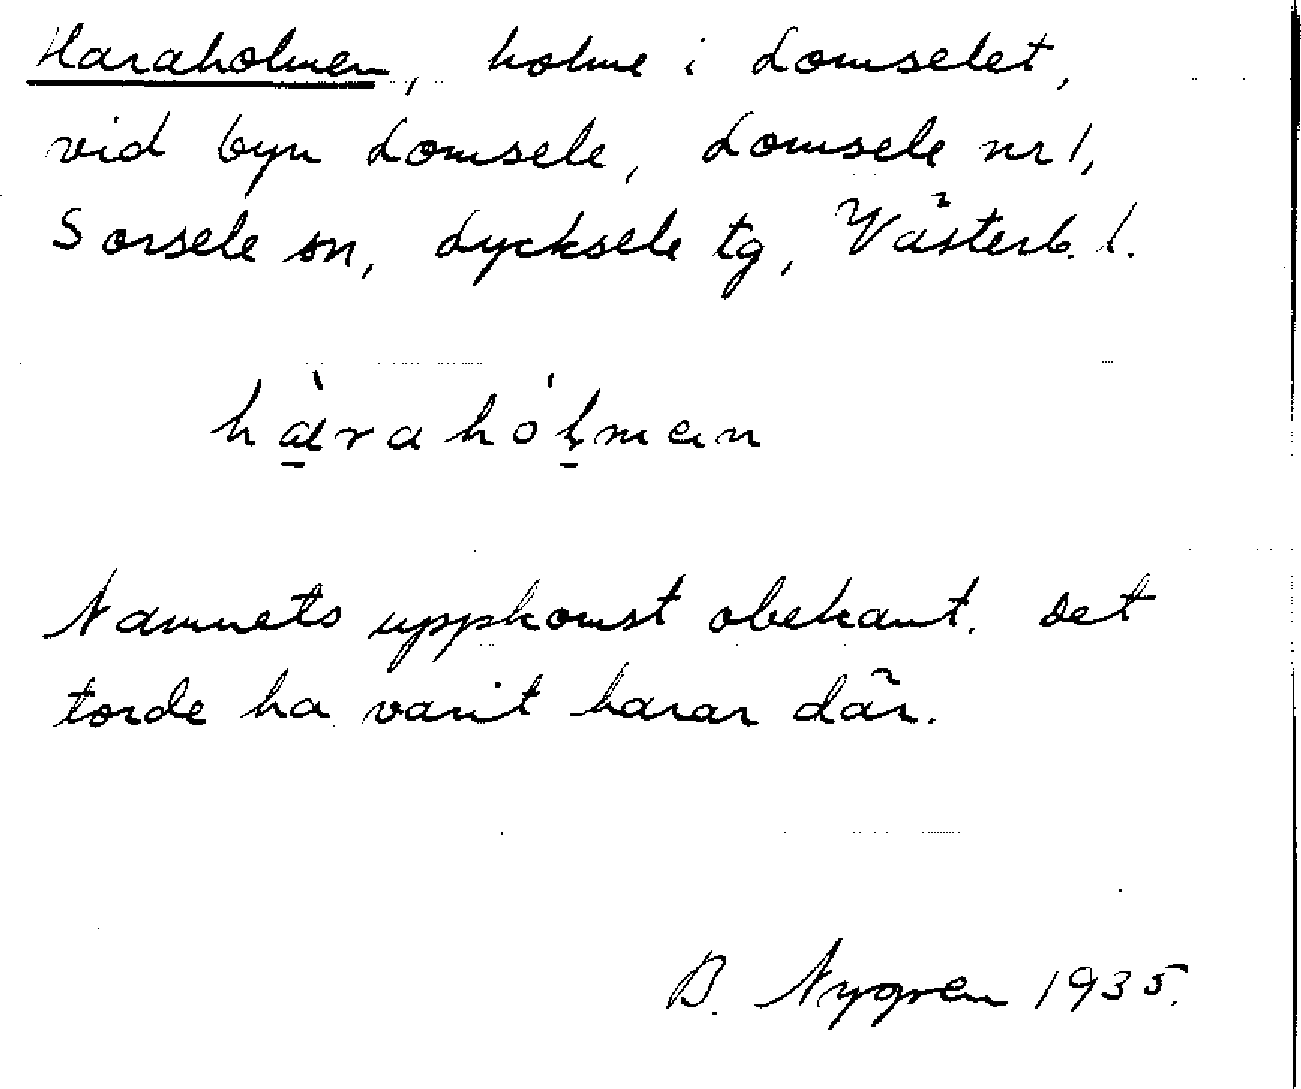 Haraholmen, holme i Lomselet,
vid byn Lomsele, Lomsele nr 1,
Sorsele sn, Lycksele tg, Västerb. l.
hàrahólmen
Namnets uppkomst obekant. Det
torde ha varit harar där.
B. Nygren 1935.